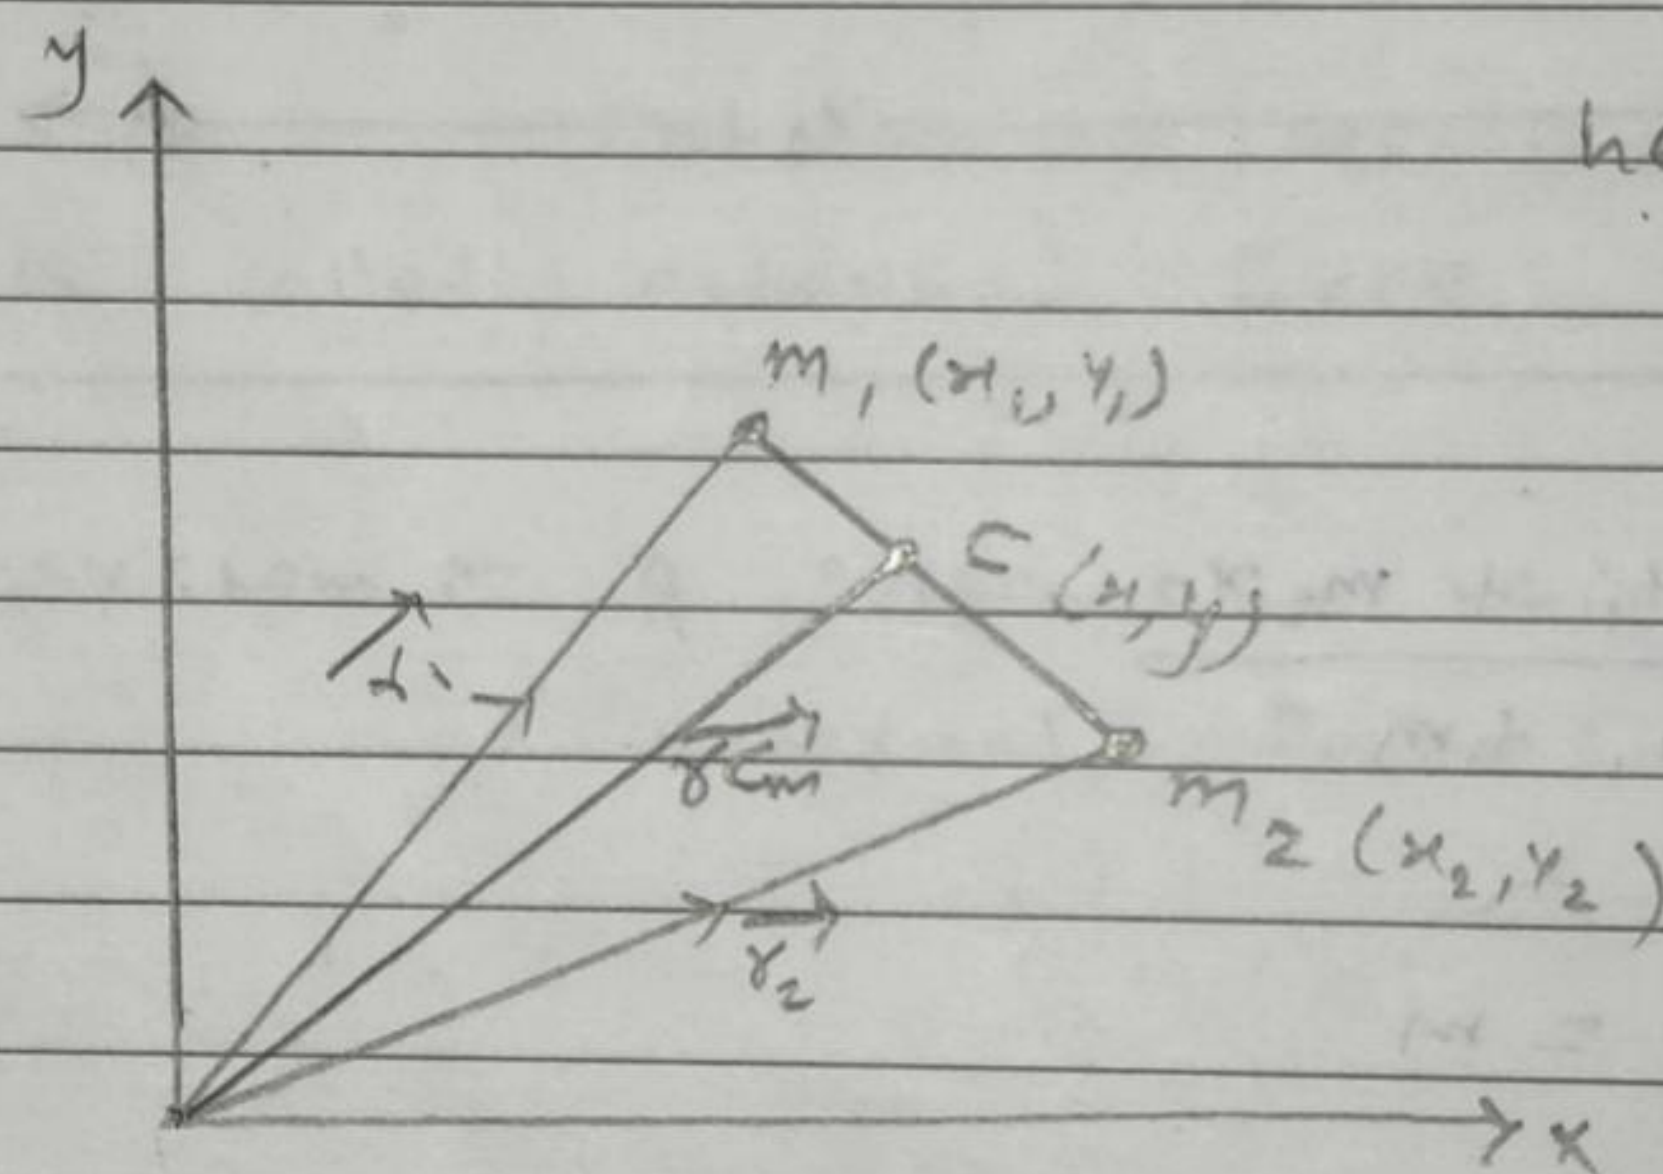 y
m₁ (x₁, y₁)
C (x, y)
r₁
r⃗cm
m₂ (x₂, y₂)
r⃗₂
x